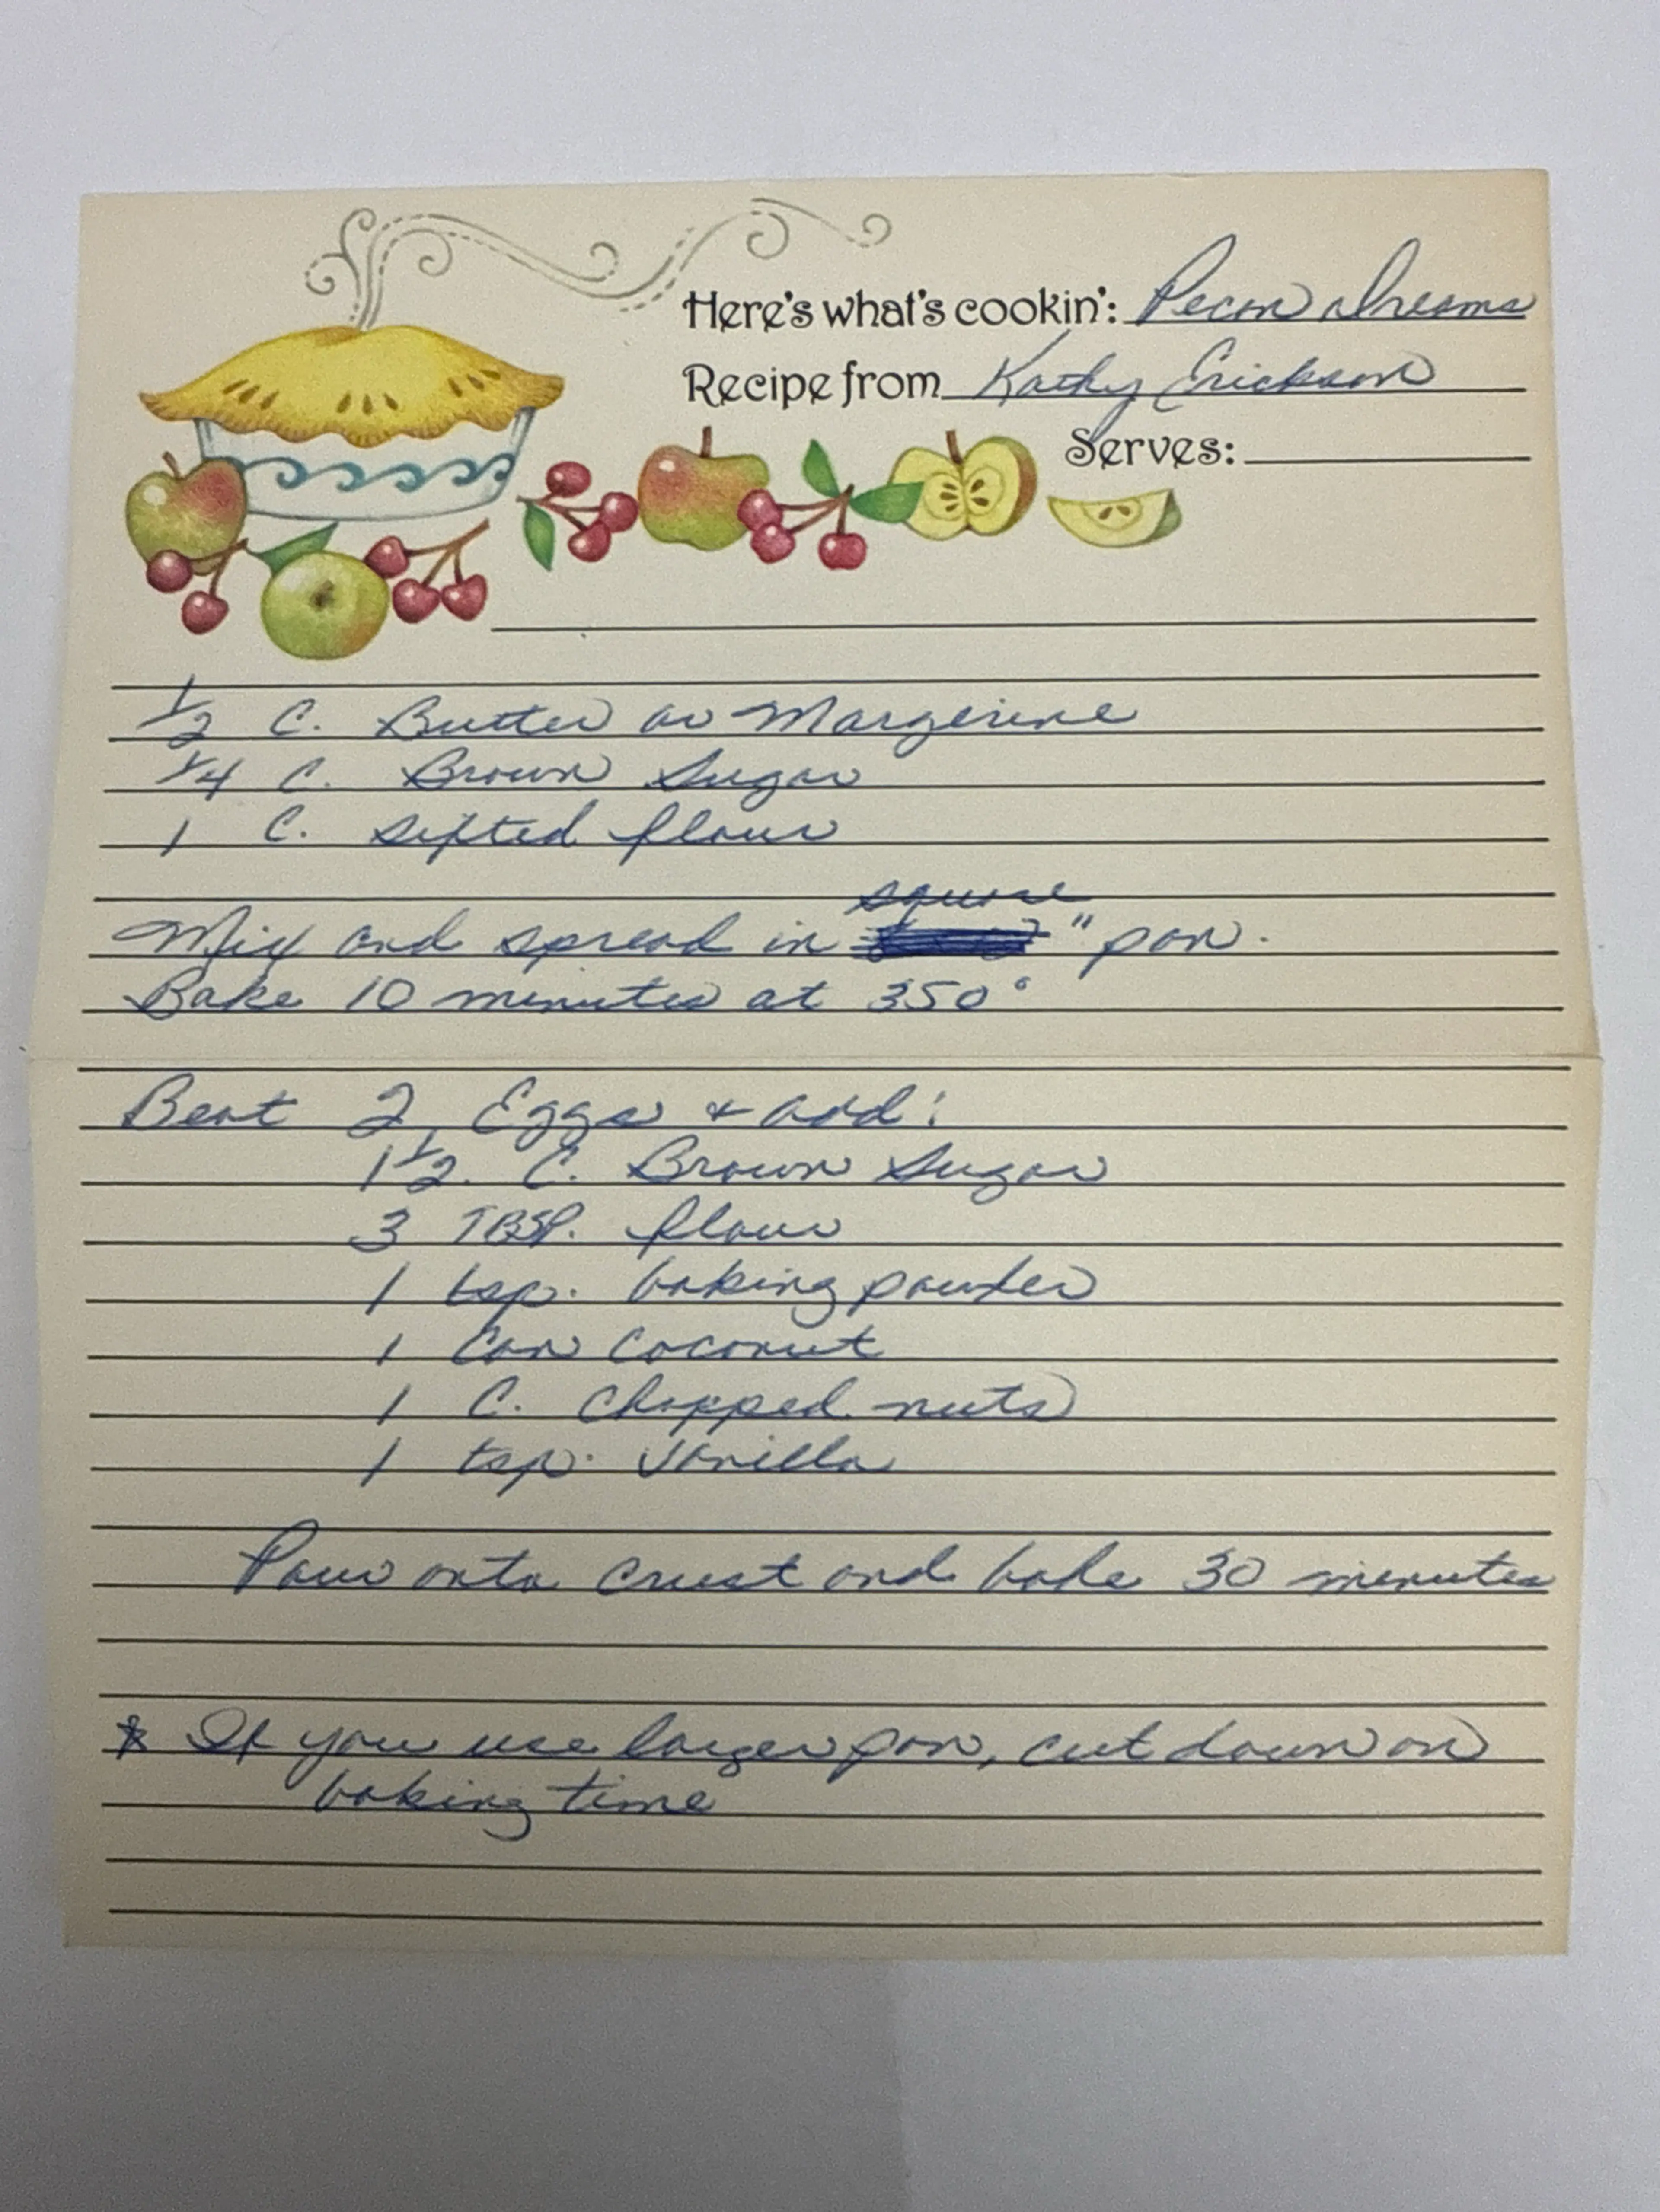 Here's what's cookin': Pecan Dreams
Recipe from Kathy Erickson
Serves:
1/2 C. Butter or Margerine
1/4 C. Brown Sugar
1 C. Sifted flour
square
Mix and spread in " pan.
Bake 10 minutes at 350°
Beat 2 Eggs + add:
1 1/2 C. Brown Sugar
3 TBSP. flour
1 tsp. baking powder
1 Can Coconut
1 C. Chopped nuts
1 tsp. Vanilla
Pour onto crust and bake 30 minutes
* If you use larger pan, cut down on
baking time